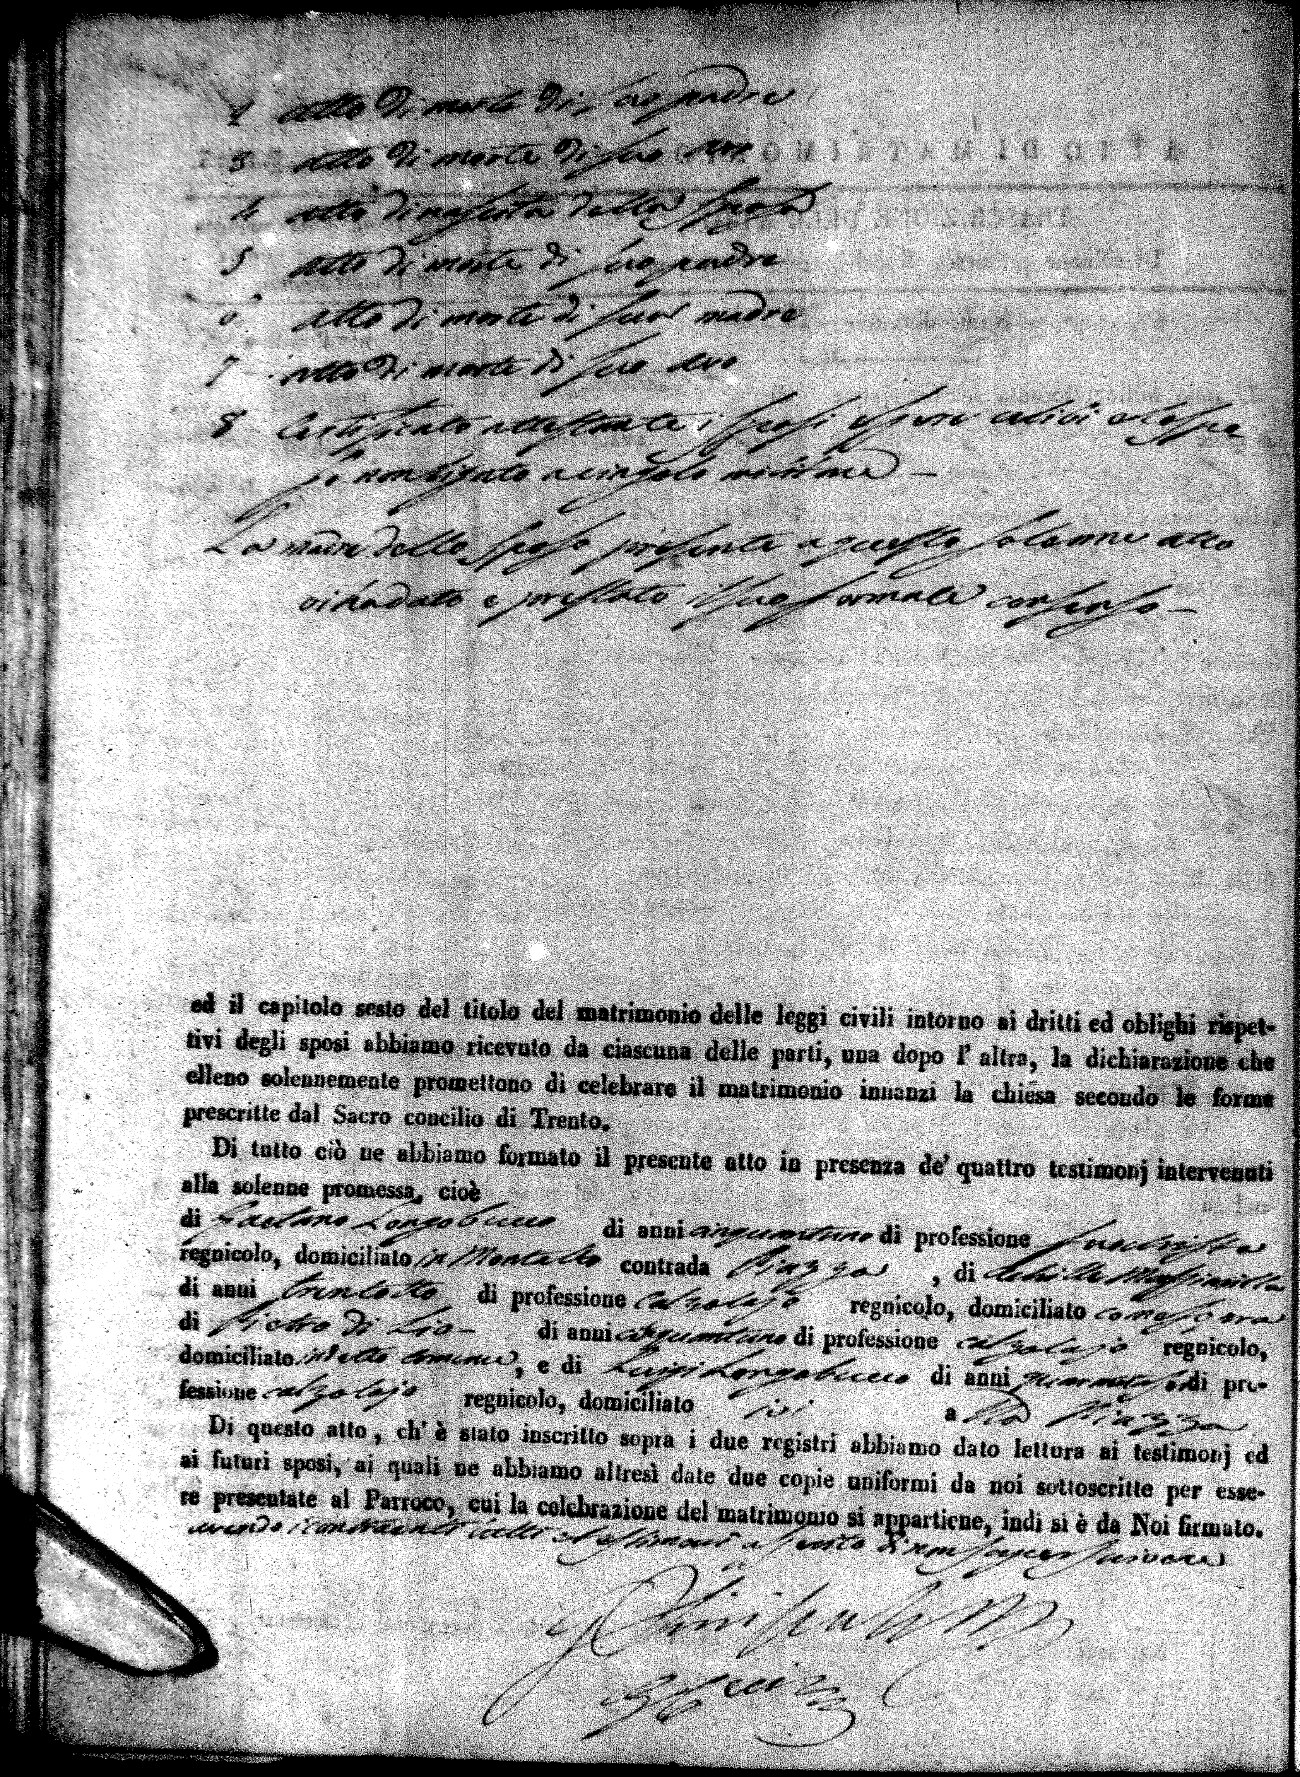 2 atto di morte di suo padre
3 atto di morte di suo avo
4 atto di nascita della sposa
5 atto di morte di suo padre
6 atto di morte di sua madre
7 atto di morte di suo avo
8 Certificato attestante i sposi essere
La madre dello sposo presente a questo solenne atto
vi ha dato e prestato il suo formale consenso
ed il capitolo sesto del titolo del matrimonio delle leggi civili intorno ai dritti ed oblighi rispet-
tivi degli sposi abbiamo ricevuto da ciascuna delle parti, una dopo l' altra, la dichiarazione che
elleno solennemente promettono di celebrare il matrimonio innanzi la chiesa secondo le forme
prescritte dal Sacro concilio di Trento.
Di tutto ciò ne abbiamo formato il presente atto in presenza de' quattro testimonj intervenuti
alla solenne promessa, cioè
di Gaetano Longobucco di anni cinquantuno di professione
regnicolo, domiciliato in Montalto contrada Piazza , di Achille
di anni trentotto di professione calzolajo regnicolo, domiciliato come sopra
di Pietro di Lio di anni cinquantuno di professione calzolajo regnicolo,
domiciliato in detto comune, e di Luigi Longobucco di anni di pro-
fessione calzolajo regnicolo, domiciliato ivi a Piazza
Di questo atto, ch' è stato inscritto sopra i due registri abbiamo dato lettura ai testimonj ed
ai futuri sposi, ai quali ne abbiamo altresì date due copie uniformi da noi sottoscritte per esse-
re presentate al Parroco, cui la celebrazione del matrimonio si appartiene, indi si è da Noi firmato.
avendo di non saper scrivere